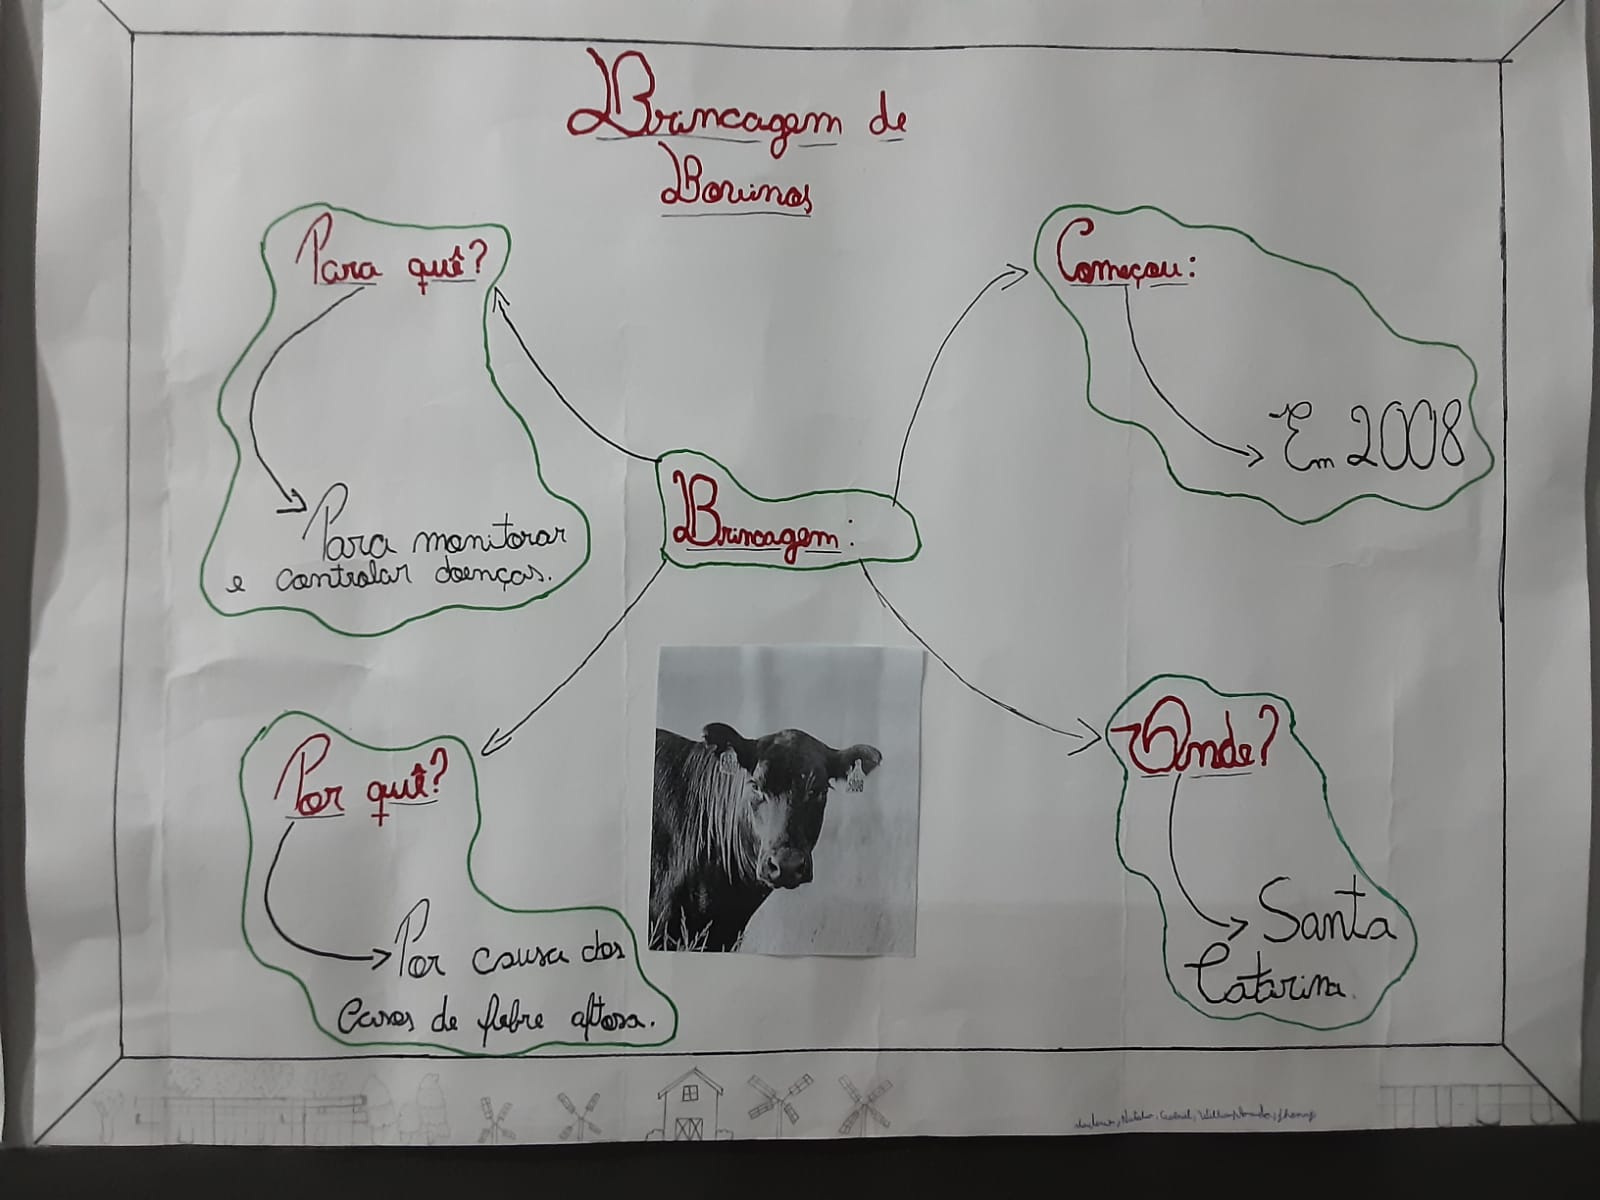 Brincagem de
Bovinos
Para quê?
Para monitorar
e controlar doenças.
Começou:
Em 2008
Brincagem:
Por quê?
Por causa dos
casos de febre aftosa.
Onde?
Santa
Catarina.